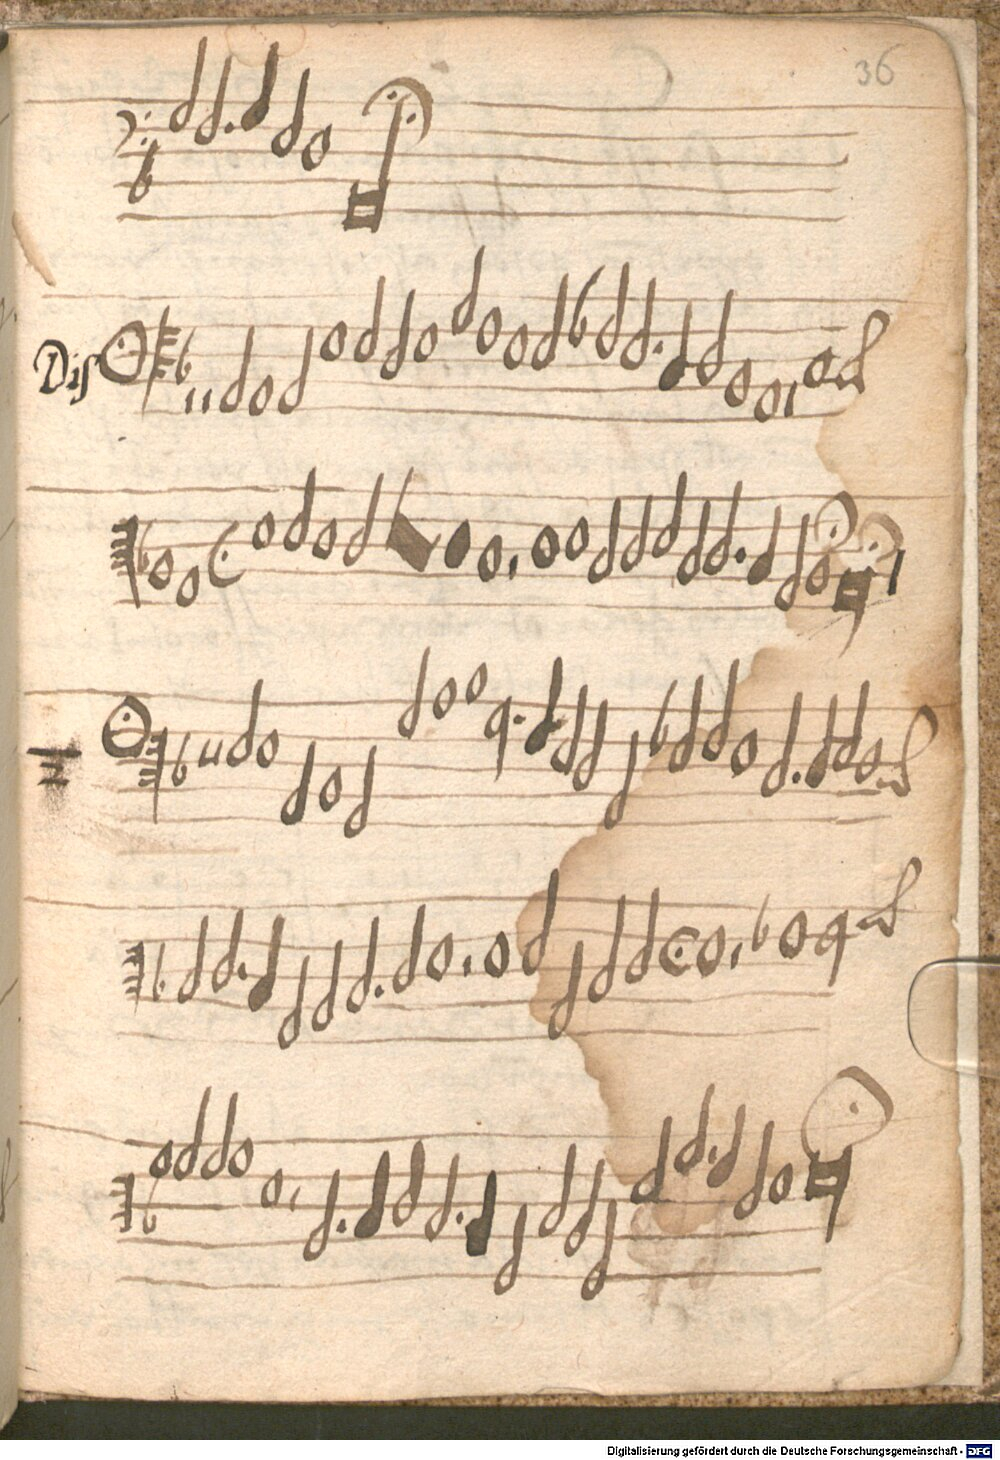 36
Dis
Digitalisierung gefördert durch die Deutsche Forschungsgemeinschaft - DFG